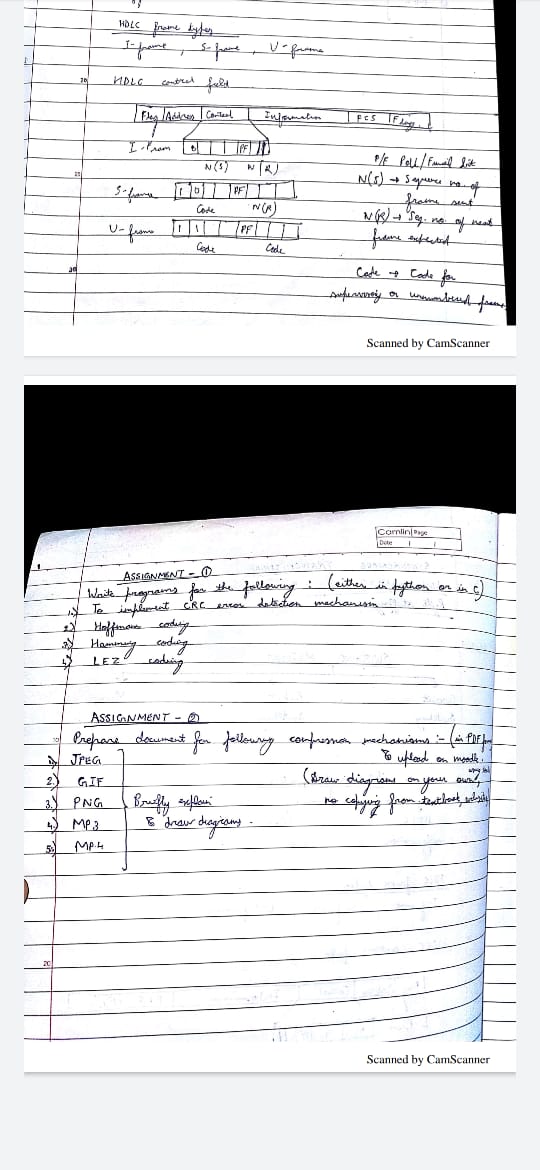 HDLC frame types
I-frame, S-frame, U-frame
HDLC control field
Flag Address Control Information FCS Flag
I-fram 0 P/F
N(S) N(R)
S-frame 1 0 P/F
Code N(R)
U-frame 1 1 P/F
Code Code
P/F Poll/Final bit
N(S) → Sequence no. of
frame sent
N(R) → Seq. no. of next
frame expected
Code → Code for
supervisory or unnumbered frames
Scanned by CamScanner
Camlin Page
Date
ASSIGNMENT - ①
Write programs for the following : (either in python or in C)
1) To implement CRC error detection mechanism
2) Hoffman coding
3) Hamming coding
4) LEZ coding
ASSIGNMENT - ②
Prepare document for following compression mechanisms :- (in PDF
& upload on moodle.
1) JPEG
2) GIF
3) PNG
4) MP3
5) MP4
Briefly explain
& draw diagrams.
(Draw diagrams on your own,
no copying from textbook, website
20
Scanned by CamScanner